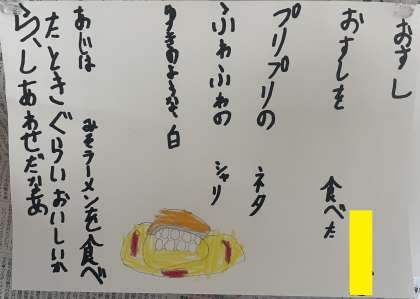 おすし
おすしを 食べた
プリプリの ネタ
ふわふわの シャリ
ゆきのような 白
あじは みそラーメンを食べ
たときぐらいおいしいか
ら、しあわせだなあ